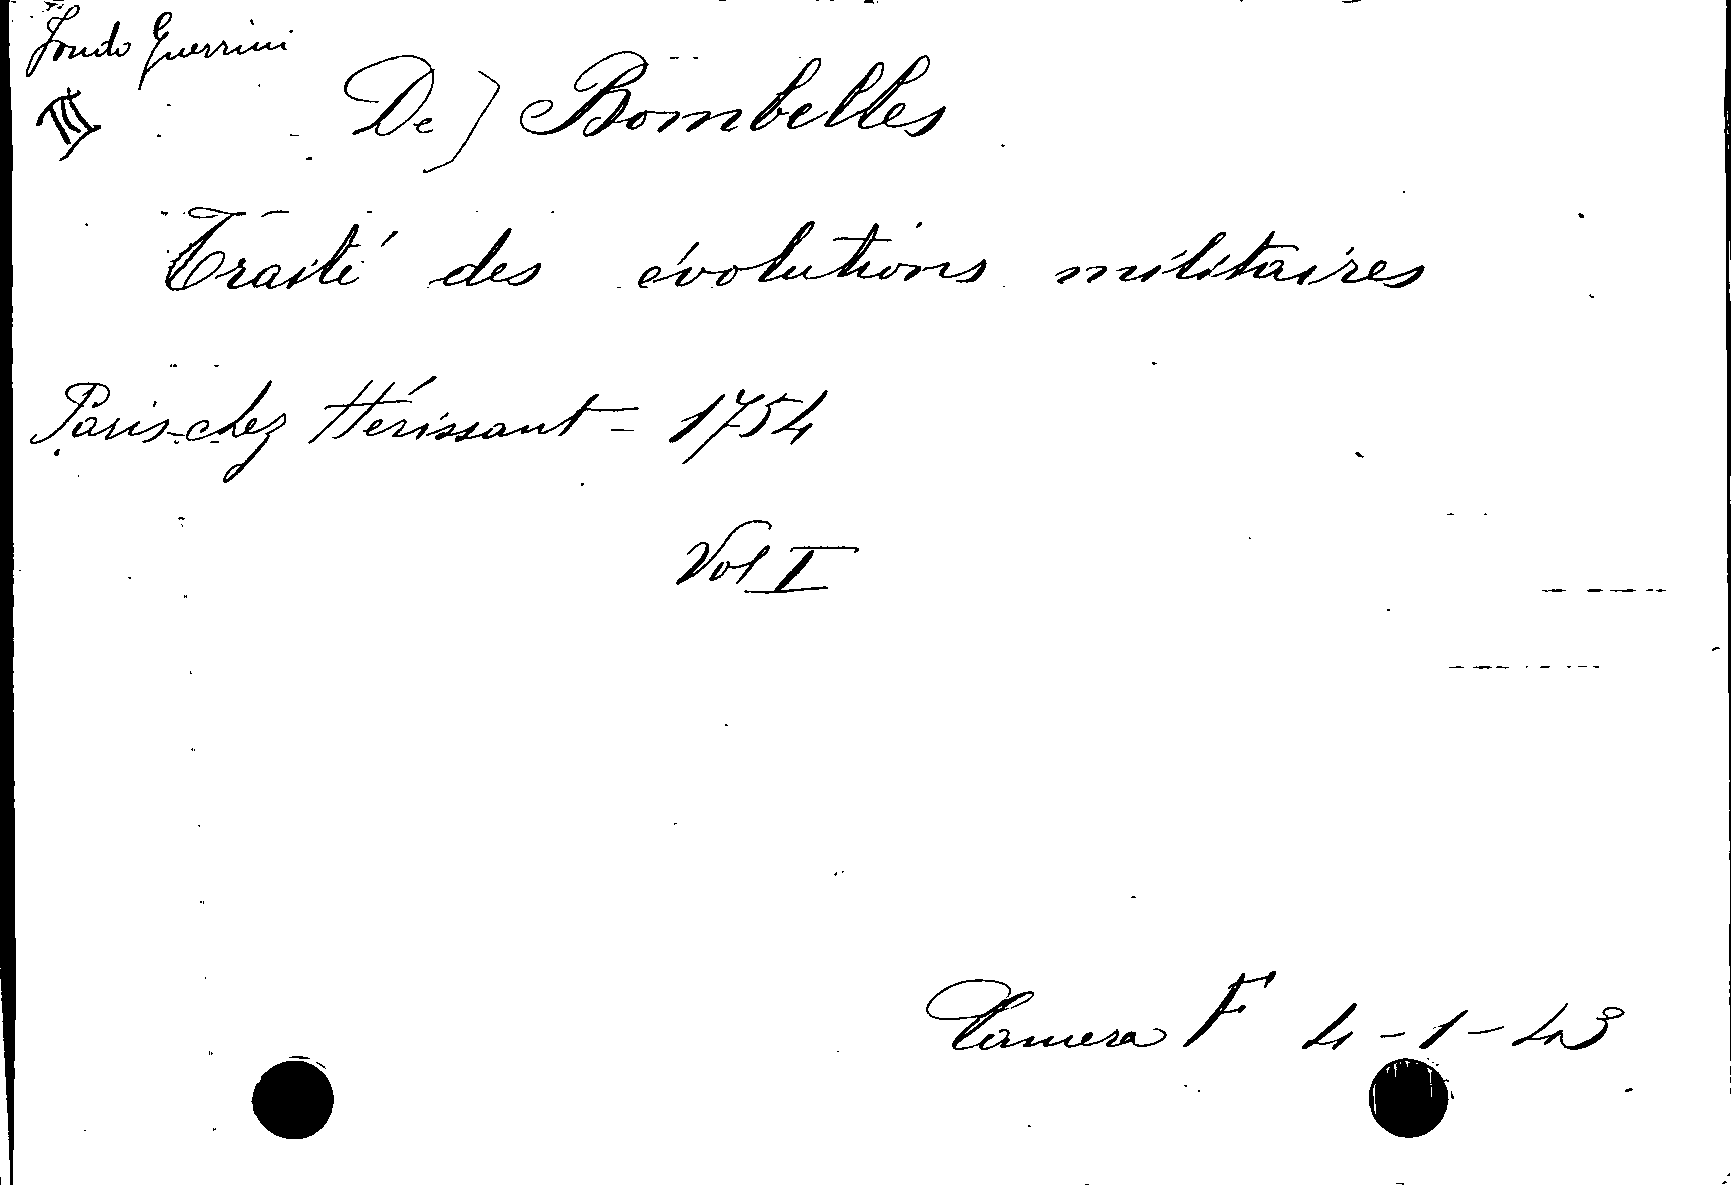 Fondo Guerrini
III
De) Bombelles
Traité des évolutions militaires
Paris-chez Hérissant = 1754
Vol I
Camera F 4-1-43